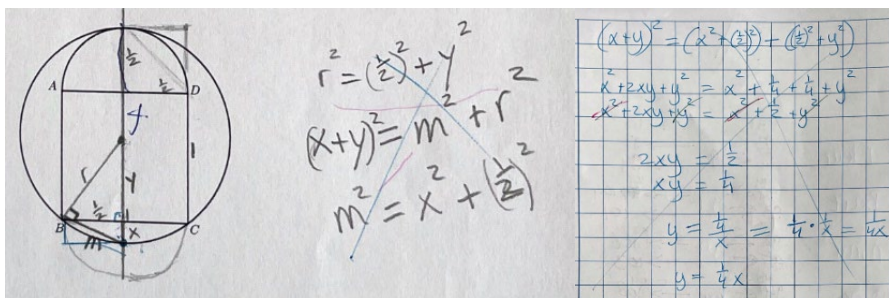 ½
½
A
D
y
1
r
y
½
B
x
C
m
r² = (½)² + y²
(x+y)² = m² + r²
m² = x² + (½)²
(x+y)² = (x² + (½)²) + (½² + y²)
x² + 2xy + y² = x² + ¼ + ¼ + y²
x² + 2xy + y² = x² + ½ + y²
2xy = ½
xy = ¼
y = ¼/x = ¼ · 1/x = 1/4x
y = ¼x